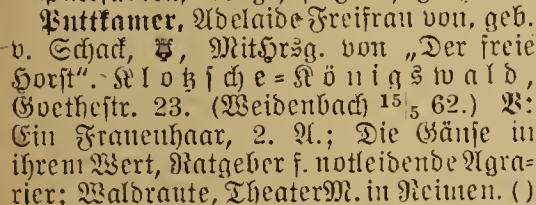 Puttkamer, Adelaide Freifrau von, geb.
v. Schack, Mithrsg. von „Der freie
Horst“. Klotzsche=Königswald,
Goethestr. 23. (Weidenbach 15/5 62.) V:
Ein Frauenhaar, 2. A.; Die Gänse in
ihrem Wert, Ratgeber f. notleidende Agra-
rier; Waldraute, TheaterM. in Reimen. ()